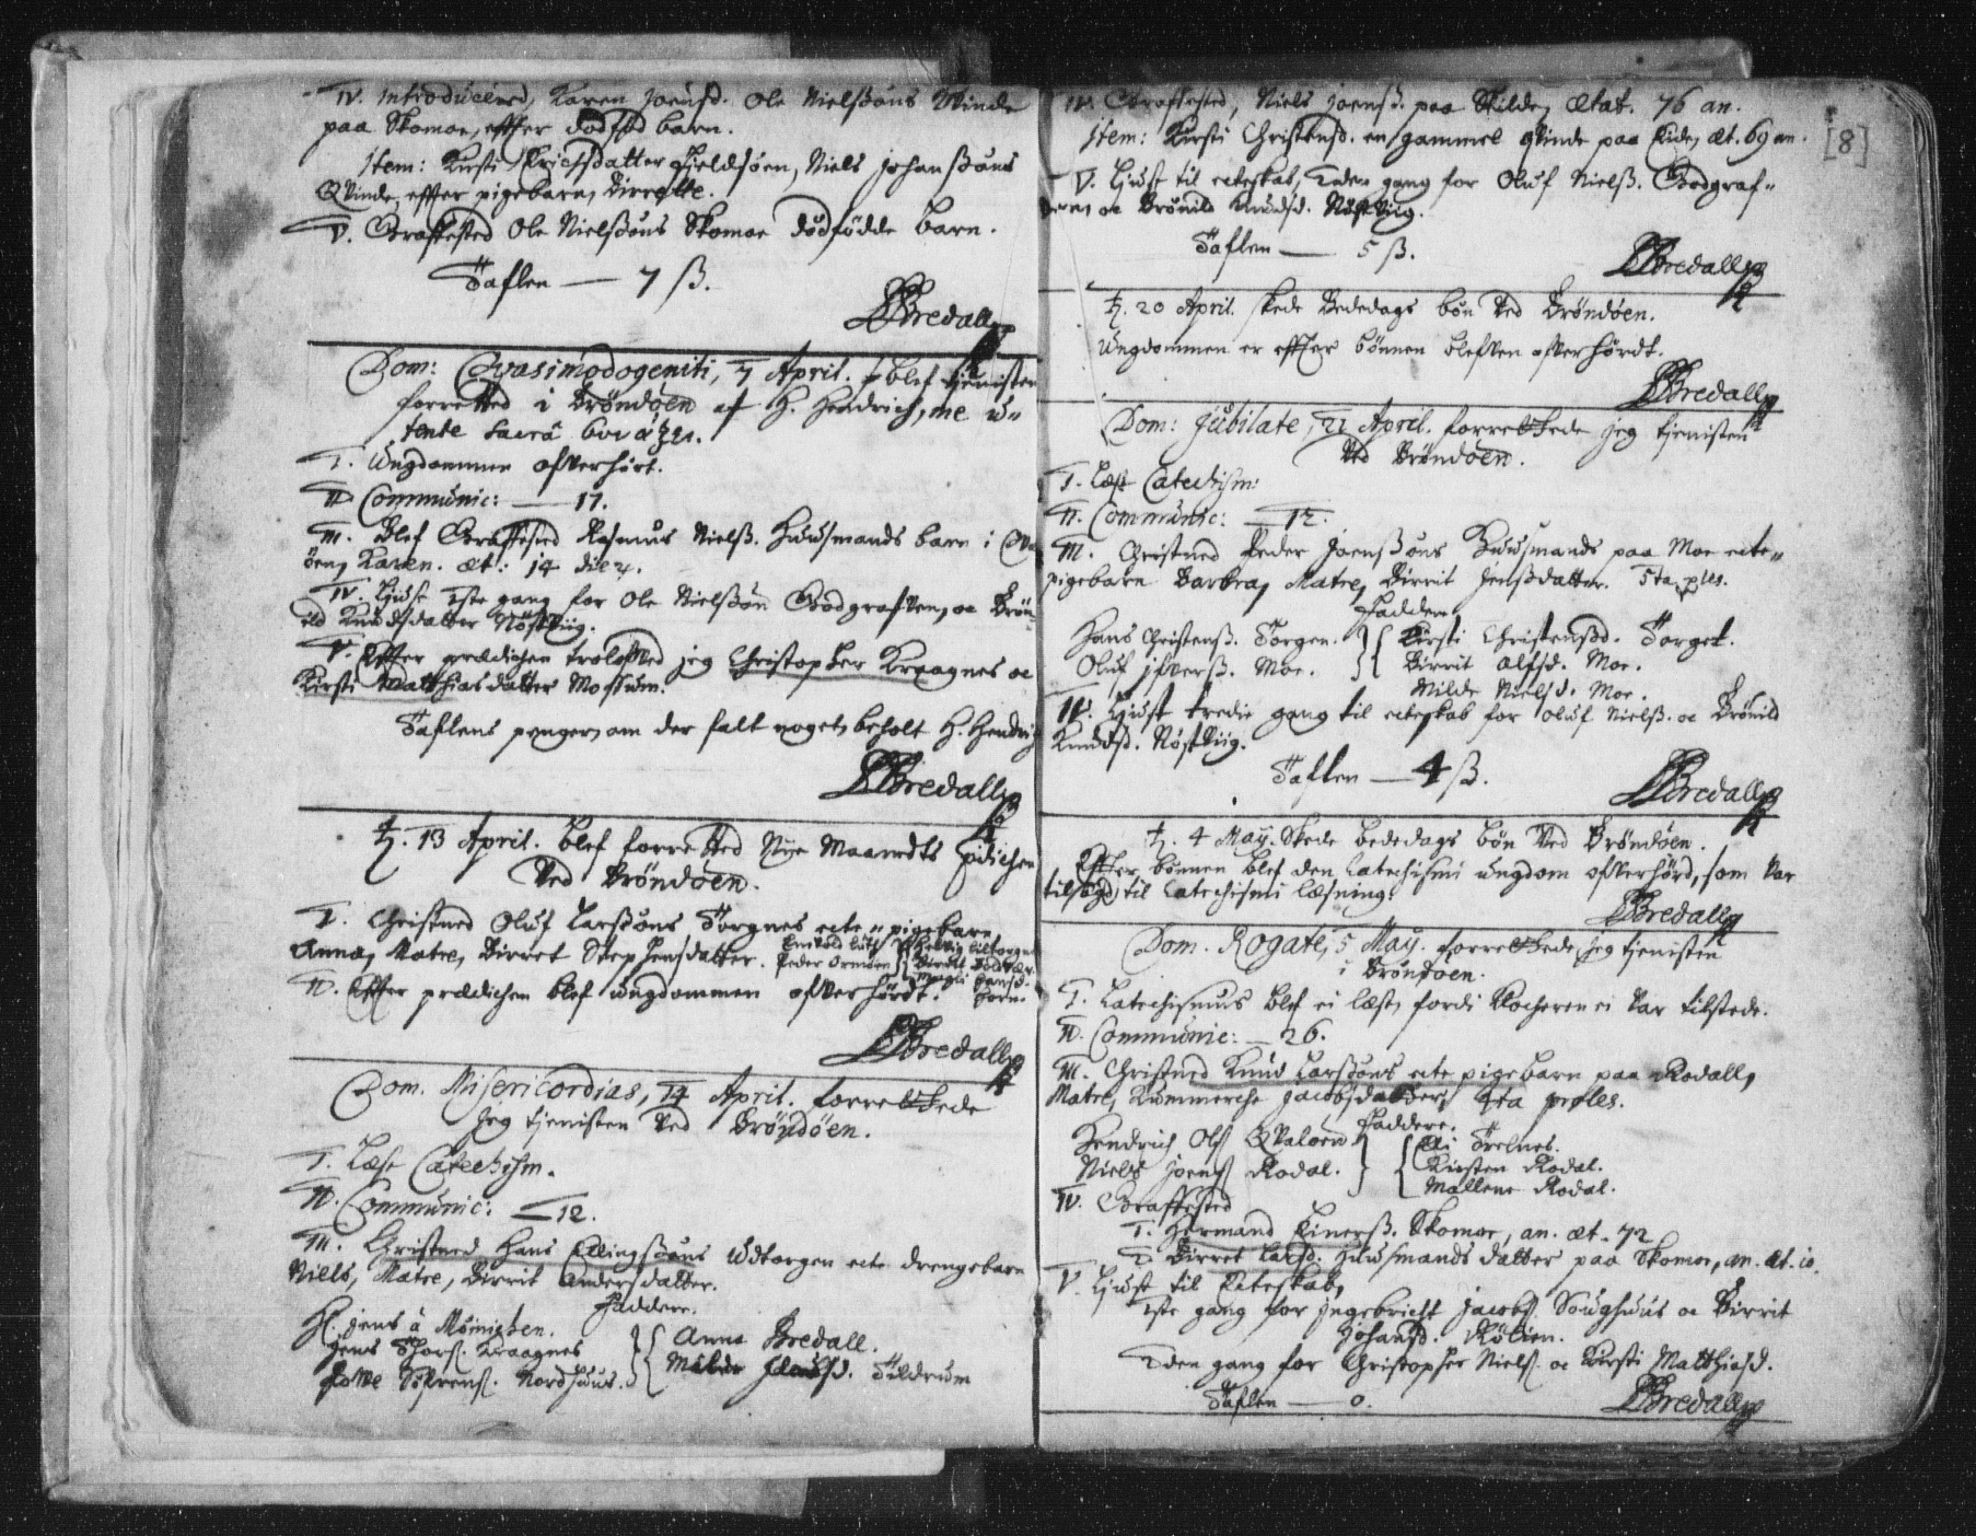 IV. Introduceerd, Karen Joensd. Ole Nielssøns Qvinde
paa Skomoe, effter dødfød barn.
Item: Kirsti Erichsdatter Hieldsøen, Niels Johanssøns
Qvinde, effter pigebarn, Birrette.
V. Graffested Ole Nielssøns Skomoe dødfødde barn.
Taflen — 7 ß.
Bredall
Dom: Qvasimodogeniti, 7 April. blef tienisten
forretted i Brøndøen af H. Hendrich, me
I. Ungdommen offverhørt.
II Communic: — 17.
III. Blef Graffested Rasmus Nielß. Huusmands barn i
øen, Karen. æt: 14 die
IV. Liuse 1ste gang for Ole Nielssøn Godgraffven, oc Brøn-
ild Knudsdatter Nøstviig.
V. Effter prædichen trolofved jeg Christopher Kraagnes oc
Kirsti Matthiasdatter Mossum.
Taflens penger, om der falt noget, beholt H. Hendrich
Bredall
ħ. 13 April. blef forretted Nye Maanedts pdichen
ved Brøndøen.
I. Christned Oluf Larssøns Torgnes ecte pigebarn
Anna, Matre, Birret Stephensdatter.
Peder Ormøen
II. Effter prædichen blef ungdommen offverhørdt.
Bredall
Dom. Misericordias, 14 April. forrettede
Jeg tienisten ved Brøndøen.
I. Læst Catechism.
II. Communic: — 12.
III. Christned Hans Ellingssøns Udtorgen ecte drengebarn
Niels, Matre, Birrit Andersdatter.
Faddere.
H. Jens à Møinichen.
Jens Thorß. Kraagnes
Tofve Søfrenß. Nordhuus.
Anna Bredall.
Tildrum
IV. Graffested, Niels Joensß. paa Tilde, Ætat. 76 an.
Item: Kirsti Christensd. en gammel qvinde paa Eide, æt. 69 an.
[8]
V. Liust til ecteskab, 2den gang for Oluf Nielß. Godgraf-
oc Brønild Knudsd. Nøstviig.
Taflen — 5 ß.
Bredall
ħ. 20 April. skede Bededags bøn ved Brøndøen.
Ungdommen er effter bønnen bleffven offverhørdt.
Bredall
Dom: Jubilate, 21 April. forrettede jeg tienisten
ved Brøndøen.
I. Læst Catechism:
II. Communic: — 12.
III. Christned Peder Joenssøns Huusmands paa Moe ecte
pigebarn Barbra, Matre, Birrit Jenssdatter. 5ta ples.
Faddere
Hans Christenß. Torgen.
Oluf Ifverß. Moe.
Kirsti Christenssd. Torget.
Birrit Alfsd. Moe.
Milde Nielsd. Moe.
IV. Liust tredie gang til ecteskab for Oluf Nielß. oc Brønild
Knudsd. Nøstviig.
Taflen — 4 ß.
Bredall
ħ. 4 Maÿ. Skede bededags bøn ved Brøndøen.
Effter bønnen blef den Catechismi ungdom offverhørd, som var
tilsagd til Catechismi læsning.
Bredall
Dom. Rogate, 5 Maÿ. forrettede jeg tienisten
i Brøndøen.
I. Catechismus blef ei læst, fordi Klocheren ei var tilstede.
II. Communic: — 26.
III. Christned Knud Larssøns ecte pigebarn paa Rodall,
Matre, Kummerche Jacobsdatter, 4ta proles.
Faddere.
Hendrich Olß Qvaløen
Niels Joenß Rodal.
Elli Trelnes.
Kirsten Rodal.
Mallene Rodal.
IV. Graffested
I. Hermand Einersß. Skomoe, an. æt. 72
2. Birret Larsd. Huusmands datter paa Skomoe, an. æt. 10.
V. Liust til Ecteskab,
1ste gang for Ingebricht Jacobß. Soughuus oc Birrit
Johansd. Rølien.
2den gang for Christopher Nielß. oc Kirsti Matthiasd.
Taflen — 0.
Bredall